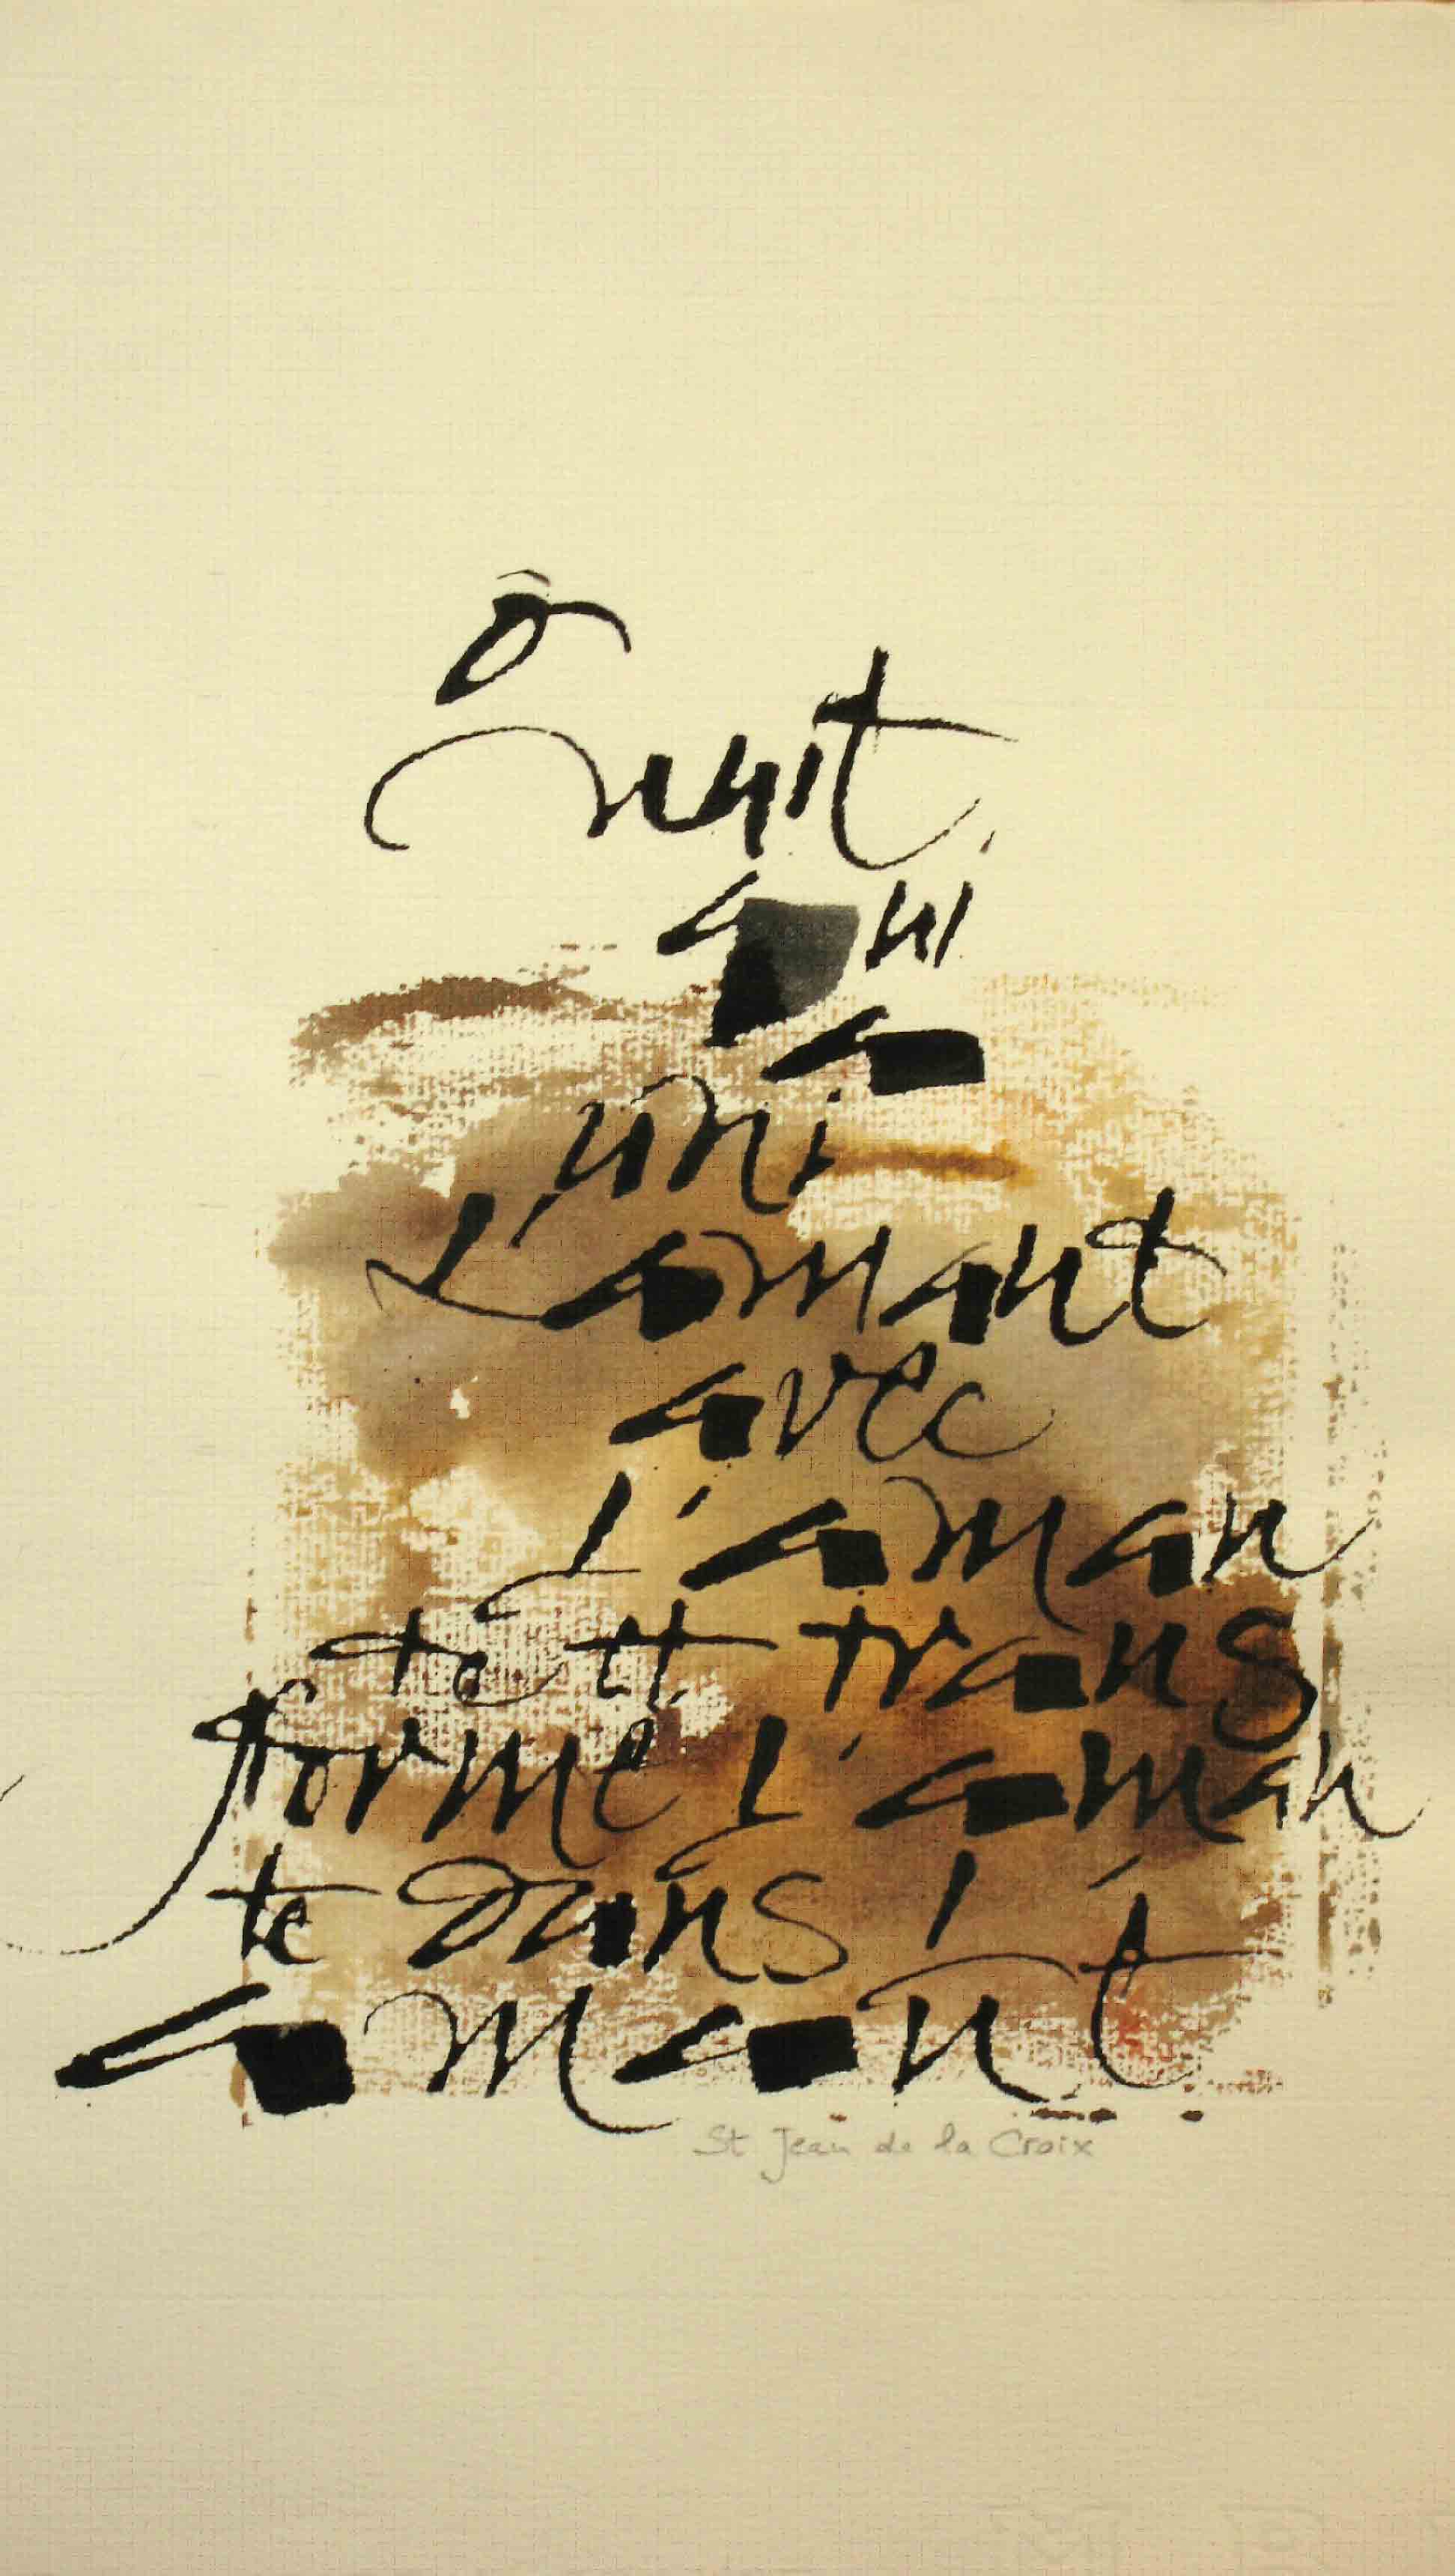 Ô
nuit,
qui
a
uni
L'amant
avec
l'aman
te et trans
forme l'aman
te dans l'
amant
St Jean de la Croix